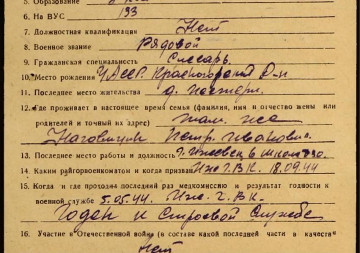 5. Образование
6. На ВУС 133
7. Должностная квалификация Нет
8. Военное звание Рядовой
9. Гражданская специальность Слесарь
10. Место рождения УАССР. Красногорский Р-н
11. Последнее место жительства д.
12. Где проживает в настоящее время семья (фамилия, имя и отчество жены или
родителей и точный их адрес) там же
Наговицын Петр Иванович.
13. Последнее место работы и должность г. Ижевск
14. Каким райгорвоенкоматом и когда призван Иж. Г.В.К. 18.09.44
15. Когда и где проходил последний раз медкомиссию и результат годности к
военной службе 5.05.44. Иж. Г.В.К.
Годен к Строевой Службе
16. Участие в Отечественной войне (в составе какой последней части в качестве
Нет